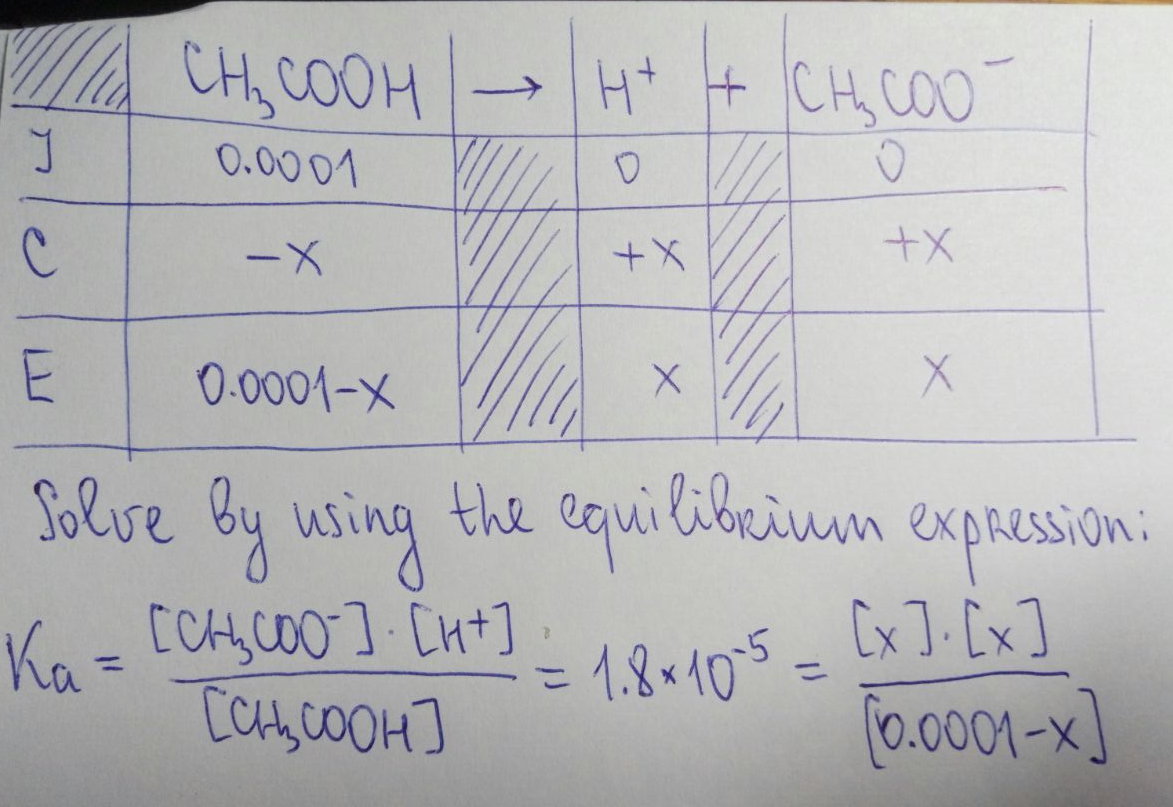 CH₃COOH → H⁺ + CH₃COO⁻
I 0.0001 0 0
C -x +x +x
E 0.0001-x x x
Solve by using the equilibrium expression:
Ka = [CH₃COO⁻]·[H+] / [CH₃COOH] = 1.8×10⁻⁵ = [x]·[x] / [0.0001-x]